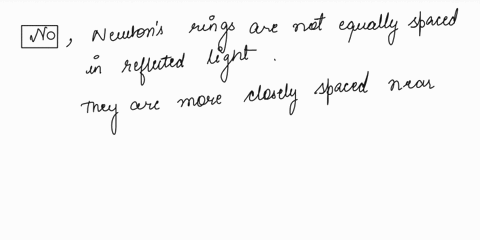 No, Newton's rings are not equally spaced
in reflected light.
They are more closely spaced near